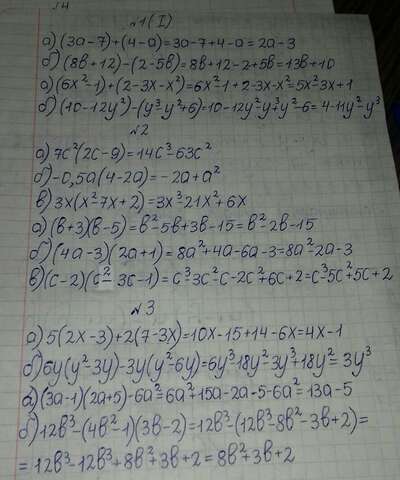 14
№1(I)
а) (3a-7)+(4-a)=3a-7+4-a=2a-3
б) (8b+12)-(2-5b)=8b+12-2+5b=13b+10
а) (6x²-1)+(2-3x-x²)=6x²-1+2-3x-x²=5x²-3x+1
б) (10-12y²)-(y³-y²+6)=10-12y²-y³+y²-6=4-11y²-y³
№2
а) 7c²(2c-9)=14c³-63c²
б) -0,5a(4-2a)=-2a+a²
в) 3x(x²-7x+2)=3x³-21x²+6x
а) (b+3)(b-5)=b²-5b+3b-15=b²-2b-15
б) (4a-3)(2a+1)=8a²+4a-6a-3=8a²-2a-3
в) (c-2)(c²-3c-1)=c³-3c²-c-2c²+6c+2=c³-5c²+5c+2
№3
а) 5(2x-3)+2(7-3x)=10x-15+14-6x=4x-1
б) 6y(y²-3y)-3y(y²-6y)=6y³-18y²-3y³+18y²=3y³
а) (3a-1)(2a+5)-6a²=6a²+15a-2a-5-6a²=13a-5
б) 12b³-(4b²-1)(3b-2)=12b³-(12b³-8b²-3b+2)=
=12b³-12b³+8b²+3b+2=8b²+3b+2